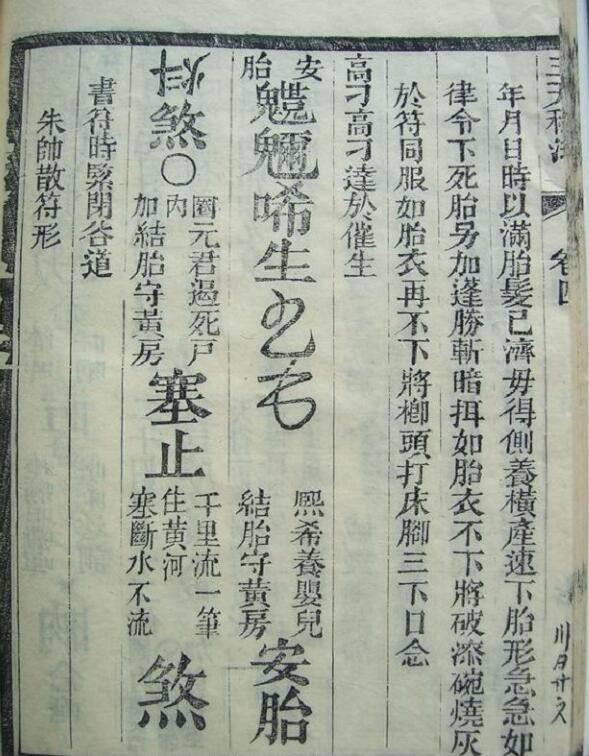 卷四
年月日時以滿胎髮已濟毋得側養橫產速下胎形急急如
律令下死胎另加逢勝斬暗揖如胎衣不下將破漆碗燒灰
於符同服如胎衣再不下將榔頭打床腳三下口念
高刁高刁達於催生
安胎
唏生
熙希養嬰兒
結胎守黃房
安胎
煞○
圈內元君遏死戸
加結胎守黃房
塞止
千里流一筆
住黃河
塞斷水不流
煞
書符時緊閉谷道
朱帥散符形